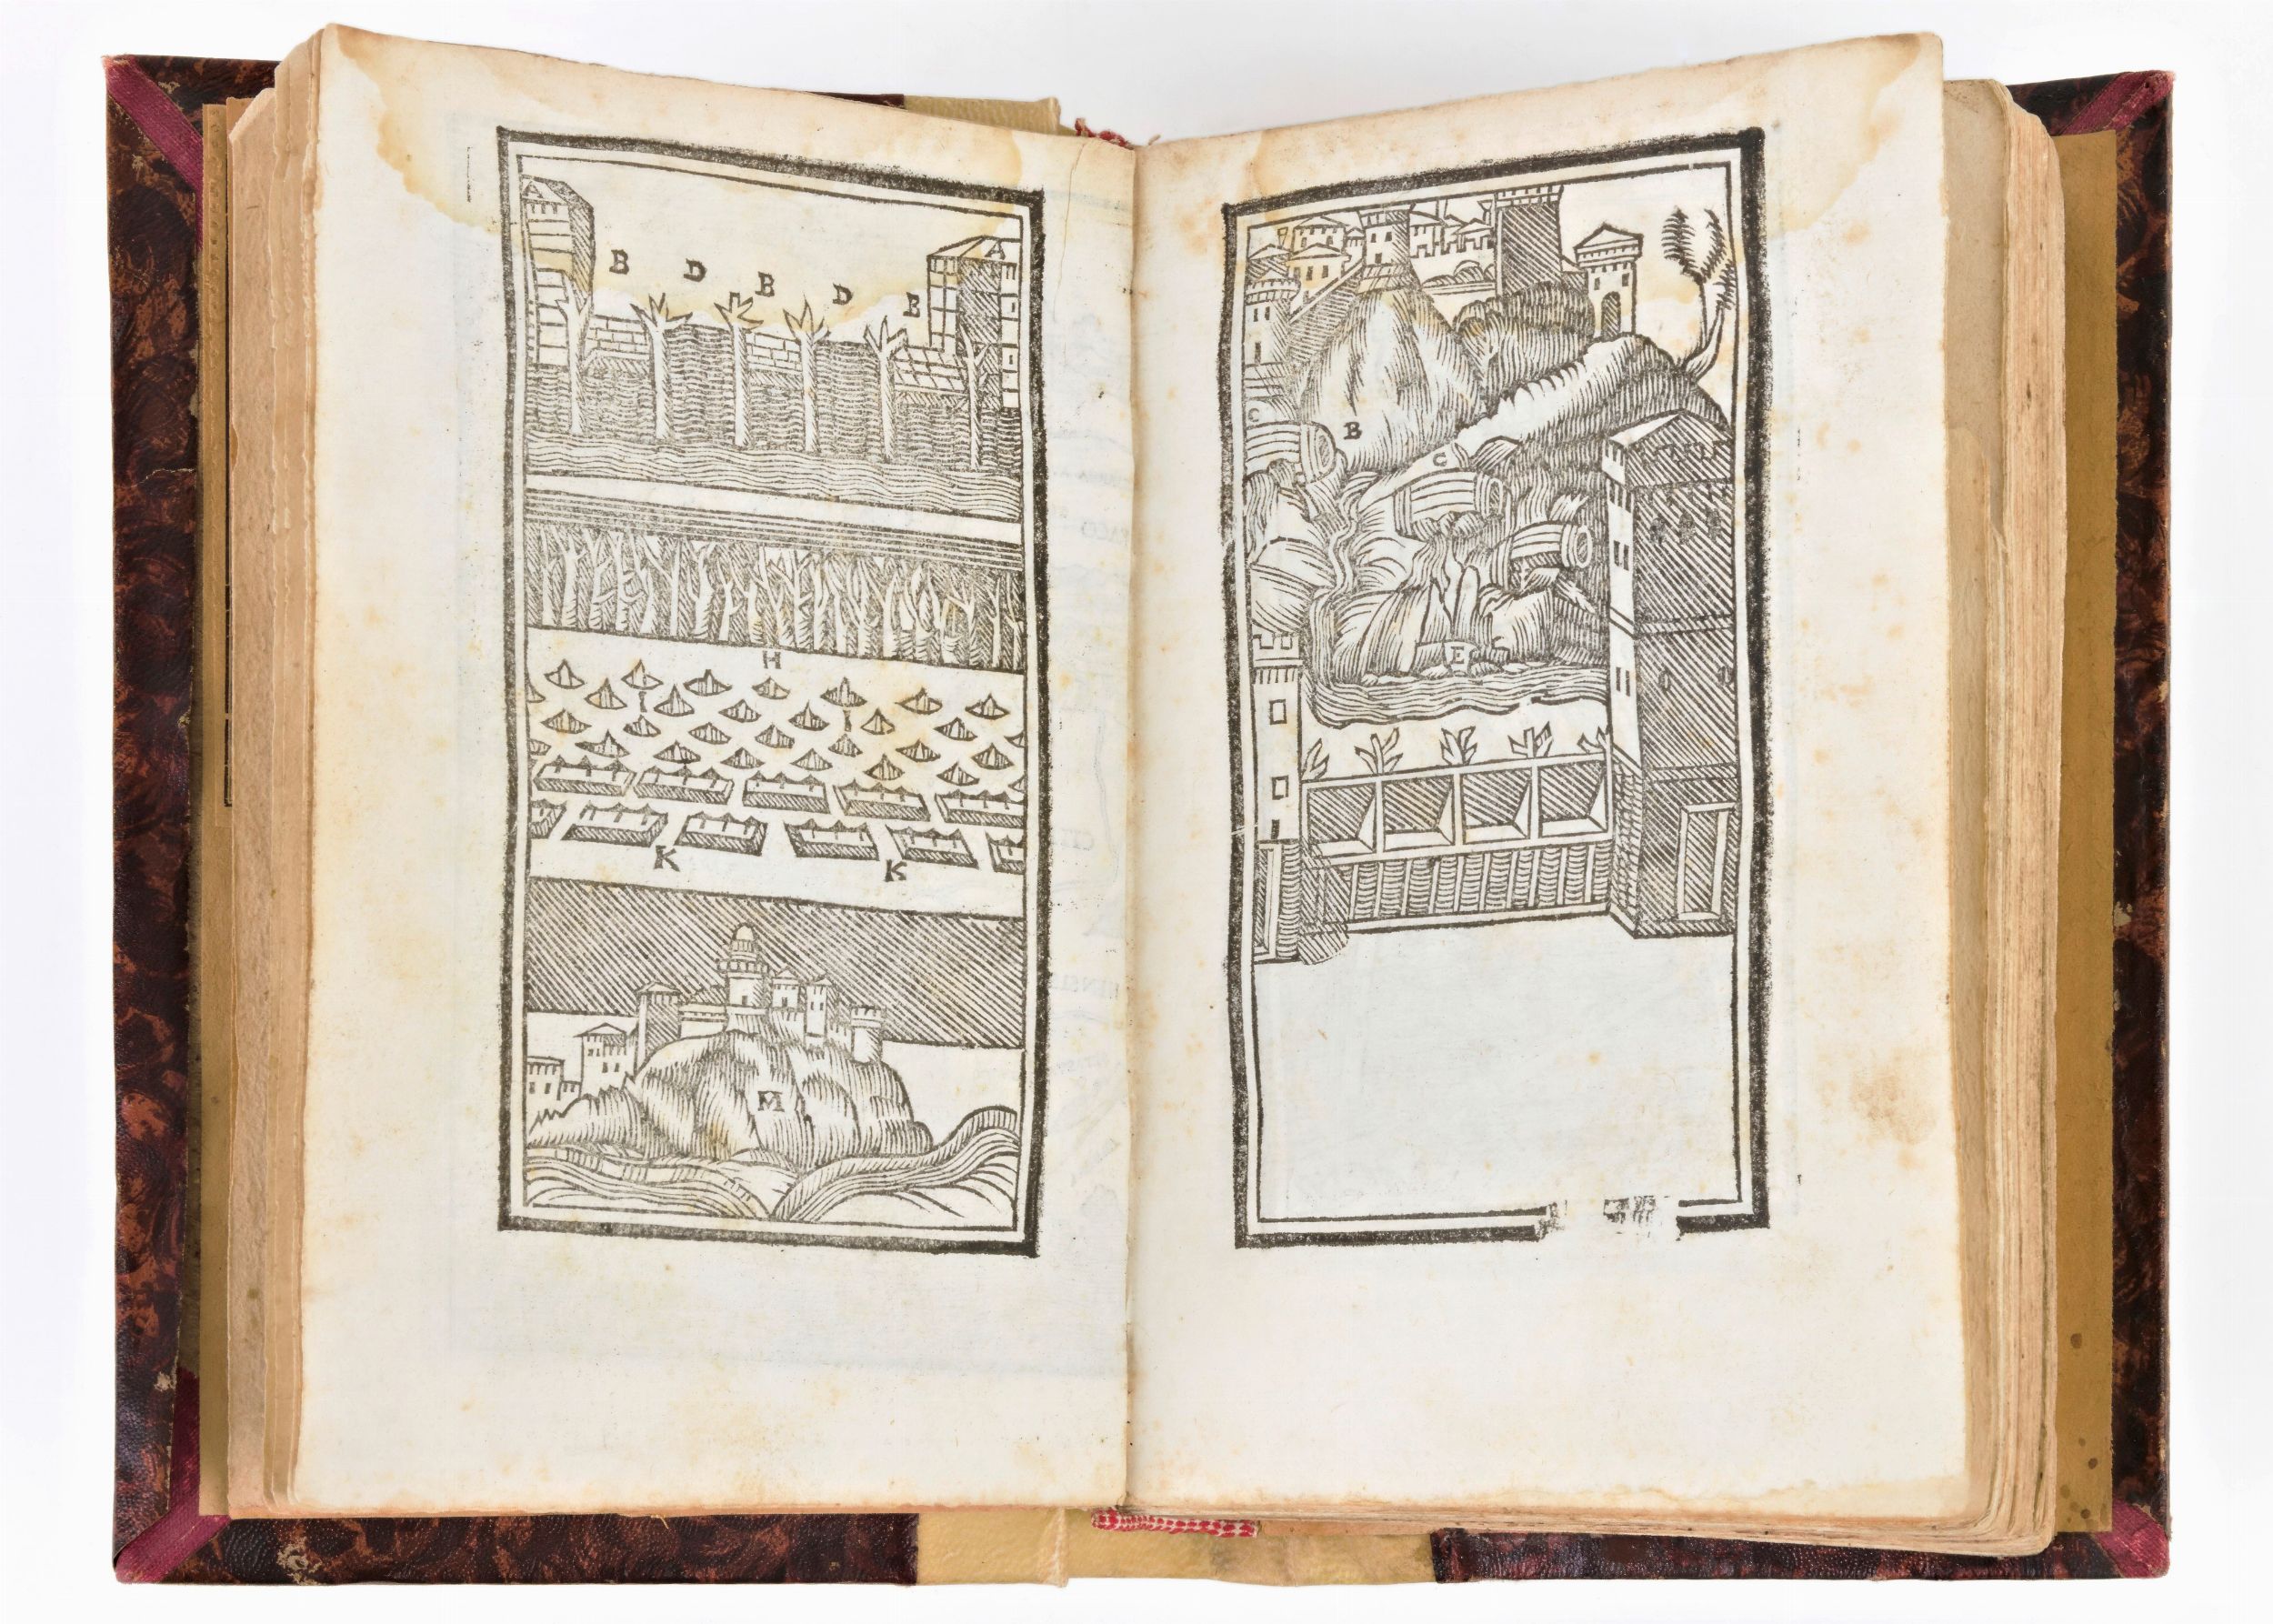 A
B D B D B
A
H
I I
K K
M
C B
C
E